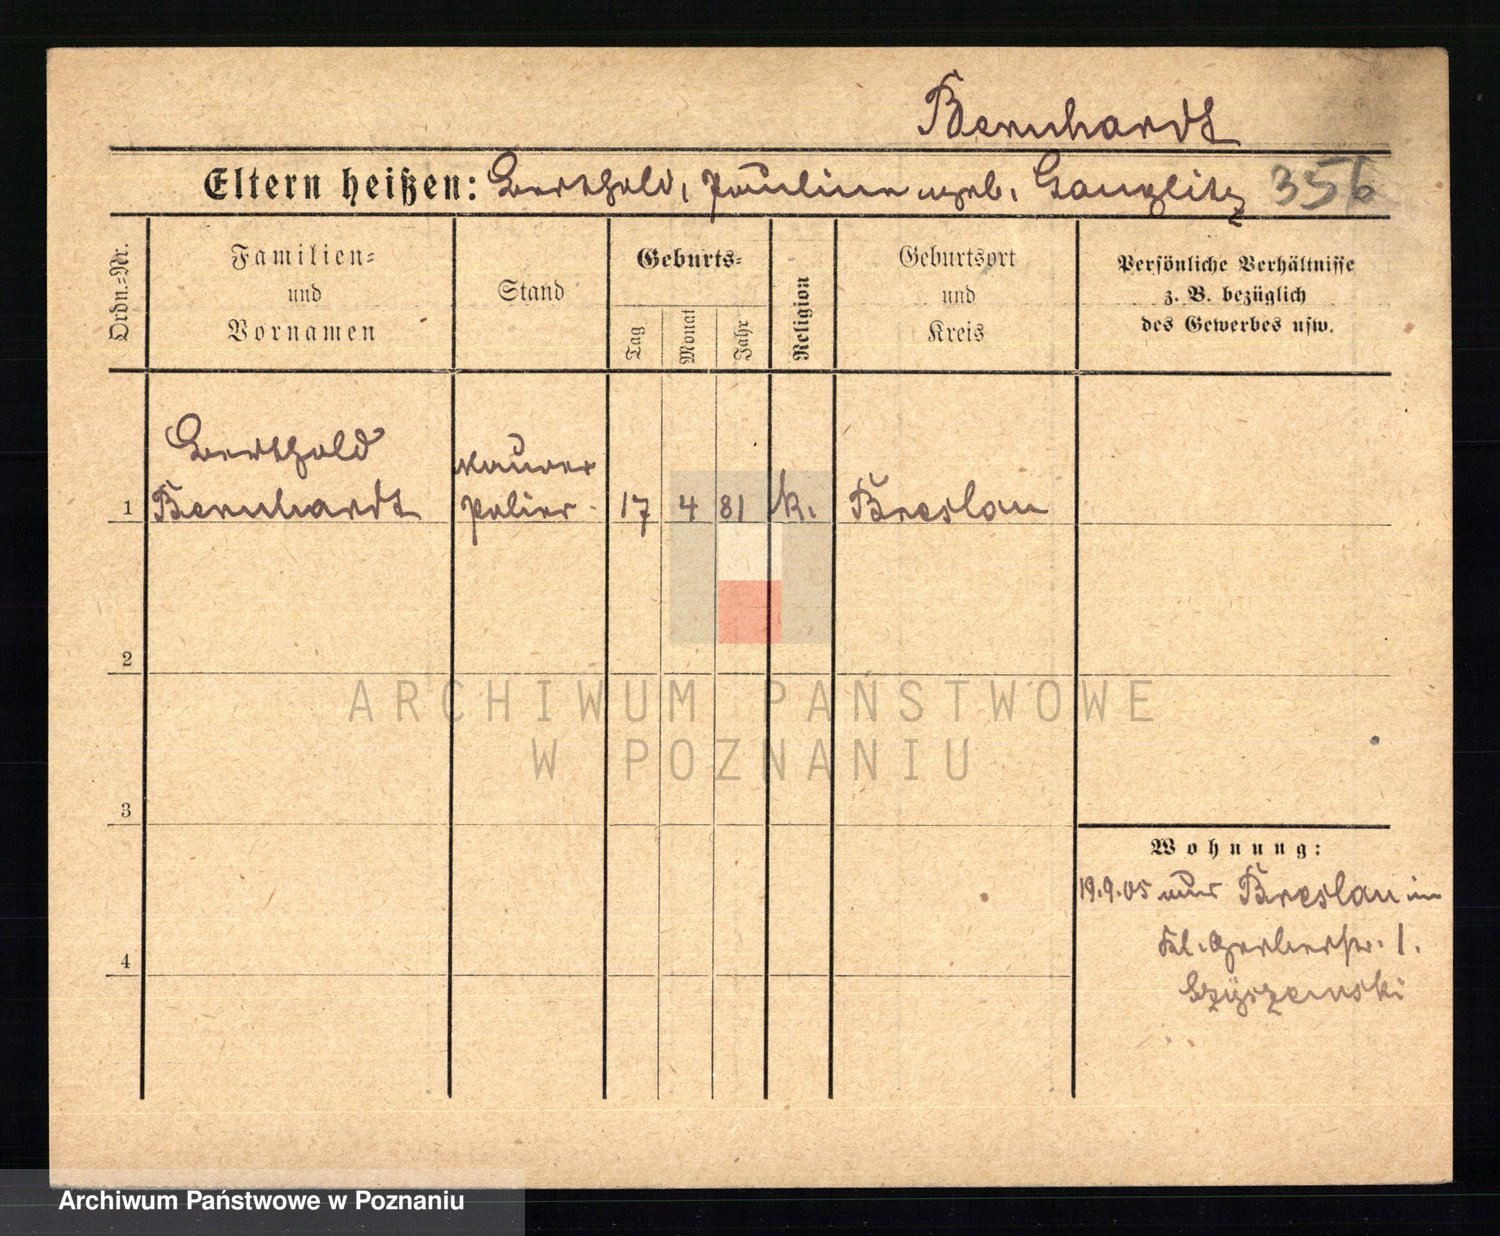 Bernhardt
Eltern heißen: Berthold, Pauline geb. Ganglitz 356
Ordn.-Nr.
Familien-
und
Vornamen
Stand
Geburts-
Tag
Monat
Jahr
Religion
Geburtsort
und
Kreis
Persönliche Verhältnisse
z. B. bezüglich
des Gewerbes usw.
Berthold
Maurer
1 Bernhardt Polier 17 4 81 k. Breslau
2
ARCHIWUM PAŃSTWOWE
W POZNANIU
3
Wohnung:
19.9.05 aus Breslau in
4
Kl. Gerberstr. 1.
Archiwum Państwowe w Poznaniu